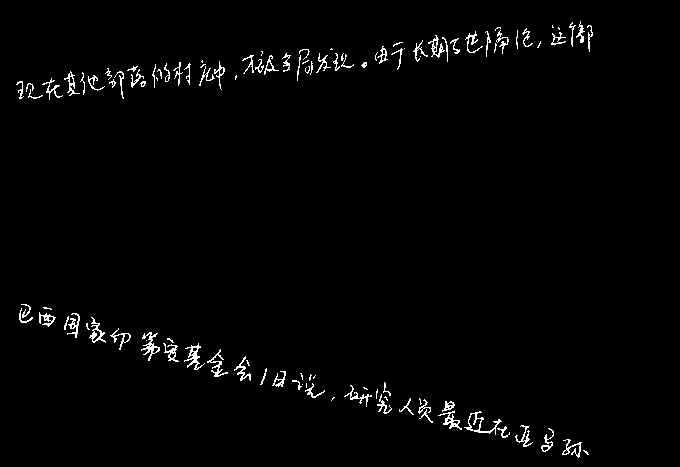 现在其他部落的村庄中，才被当局发现。由于长期与世隔绝，这个部
巴西国家印第安基金会1日说，研究人员最近在亚马孙